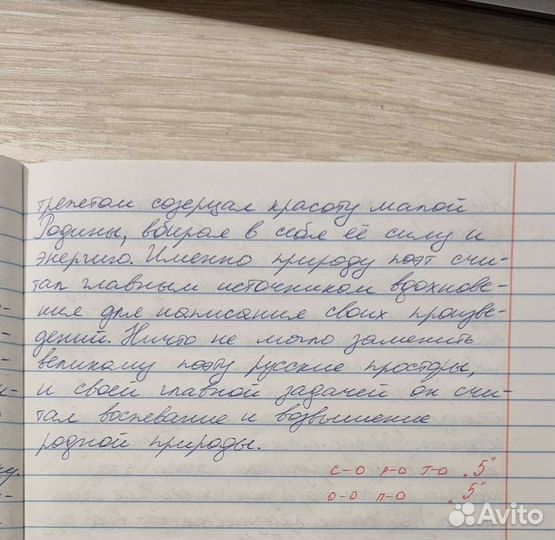 трепетом созерцал красоту малой
Родины, вбирая в себя её силу и
энергию. Именно природу поэт счи-
тал главным источником вдохнове-
ния для написания своих произве-
дений. Ничто не могло заменить
великому поэту русские просторы,
и своей главной задачей он счи-
тал воспевание и возвышение
родной природы.
С-0 Р-0 Г-0 „5"
О-0 П-0 „5"
Avito